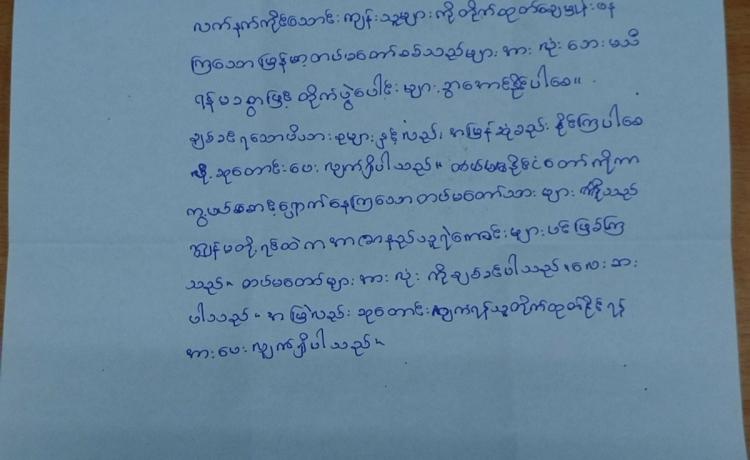 လက်နက်ကိုင်သောင်းကျန်းသူများကို တိုက်ထုတ်ချေမှုန်းနေ
ကြသော မြန်မာ့တပ်မတော်စစ်သည်များ အားလုံး ဘေးမသီ
ရန်မခဖြင့် တိုက်ပွဲပေါင်းများစွာအောင်နိုင်ပါစေ။
ချစ်ခင်ရသောမိသားစုများနှင့်လည်း အမြန်ဆုံစည်းနိုင်ကြပါစေ
လို့ ဆုတောင်းပေးလျက်ရှိပါသည်။ နိုင်ငံတော်ကိုကာ
ကွယ်စောင့်ရှောက်နေကြသော တပ်မတော်သားများကိုသည်
ကျွန်မတို့ရင်ထဲက အာဇာနည်သူရဲကောင်းများပင်ဖြစ်ကြ
သည်။ တပ်မတော်များအားလုံးကိုချစ်ခင်ပါသည်။ လေးစား
ပါသည်။ အမြဲလည်းဆုတောင်း ရန်သူတိုက်ထုတ်နိုင်ရန်
အားပေးလျက်ရှိပါသည်။